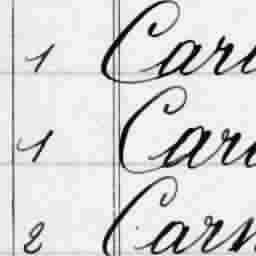 1 Car
1 Car
2 Carn